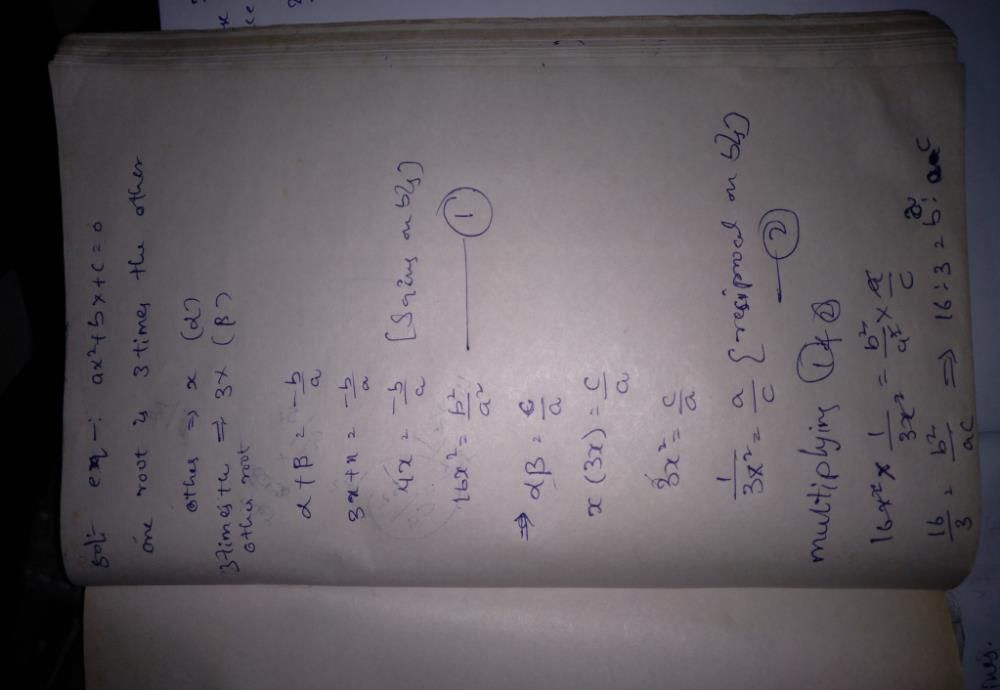 sol:- eqn -: ax²+bx+c=0
one root is 3 times the other
other ⇒ x (α)
3 times the ⇒ 3x (β)
other root
α+β = -b/a
3x+x = -b/a
4x = -b/a [Sqing on b/s]
16x² = b²/a² ——— ①
⇒ αβ = c/a
x(3x) = c/a
3x² = c/a
1/3x² = a/c {reciprocal on b/s}
— ②
multiplying ① & ②
16x² × 1/3x² = b²/a² × a/c
16/3 = b²/ac ⇒ 16:3 = b²: ac